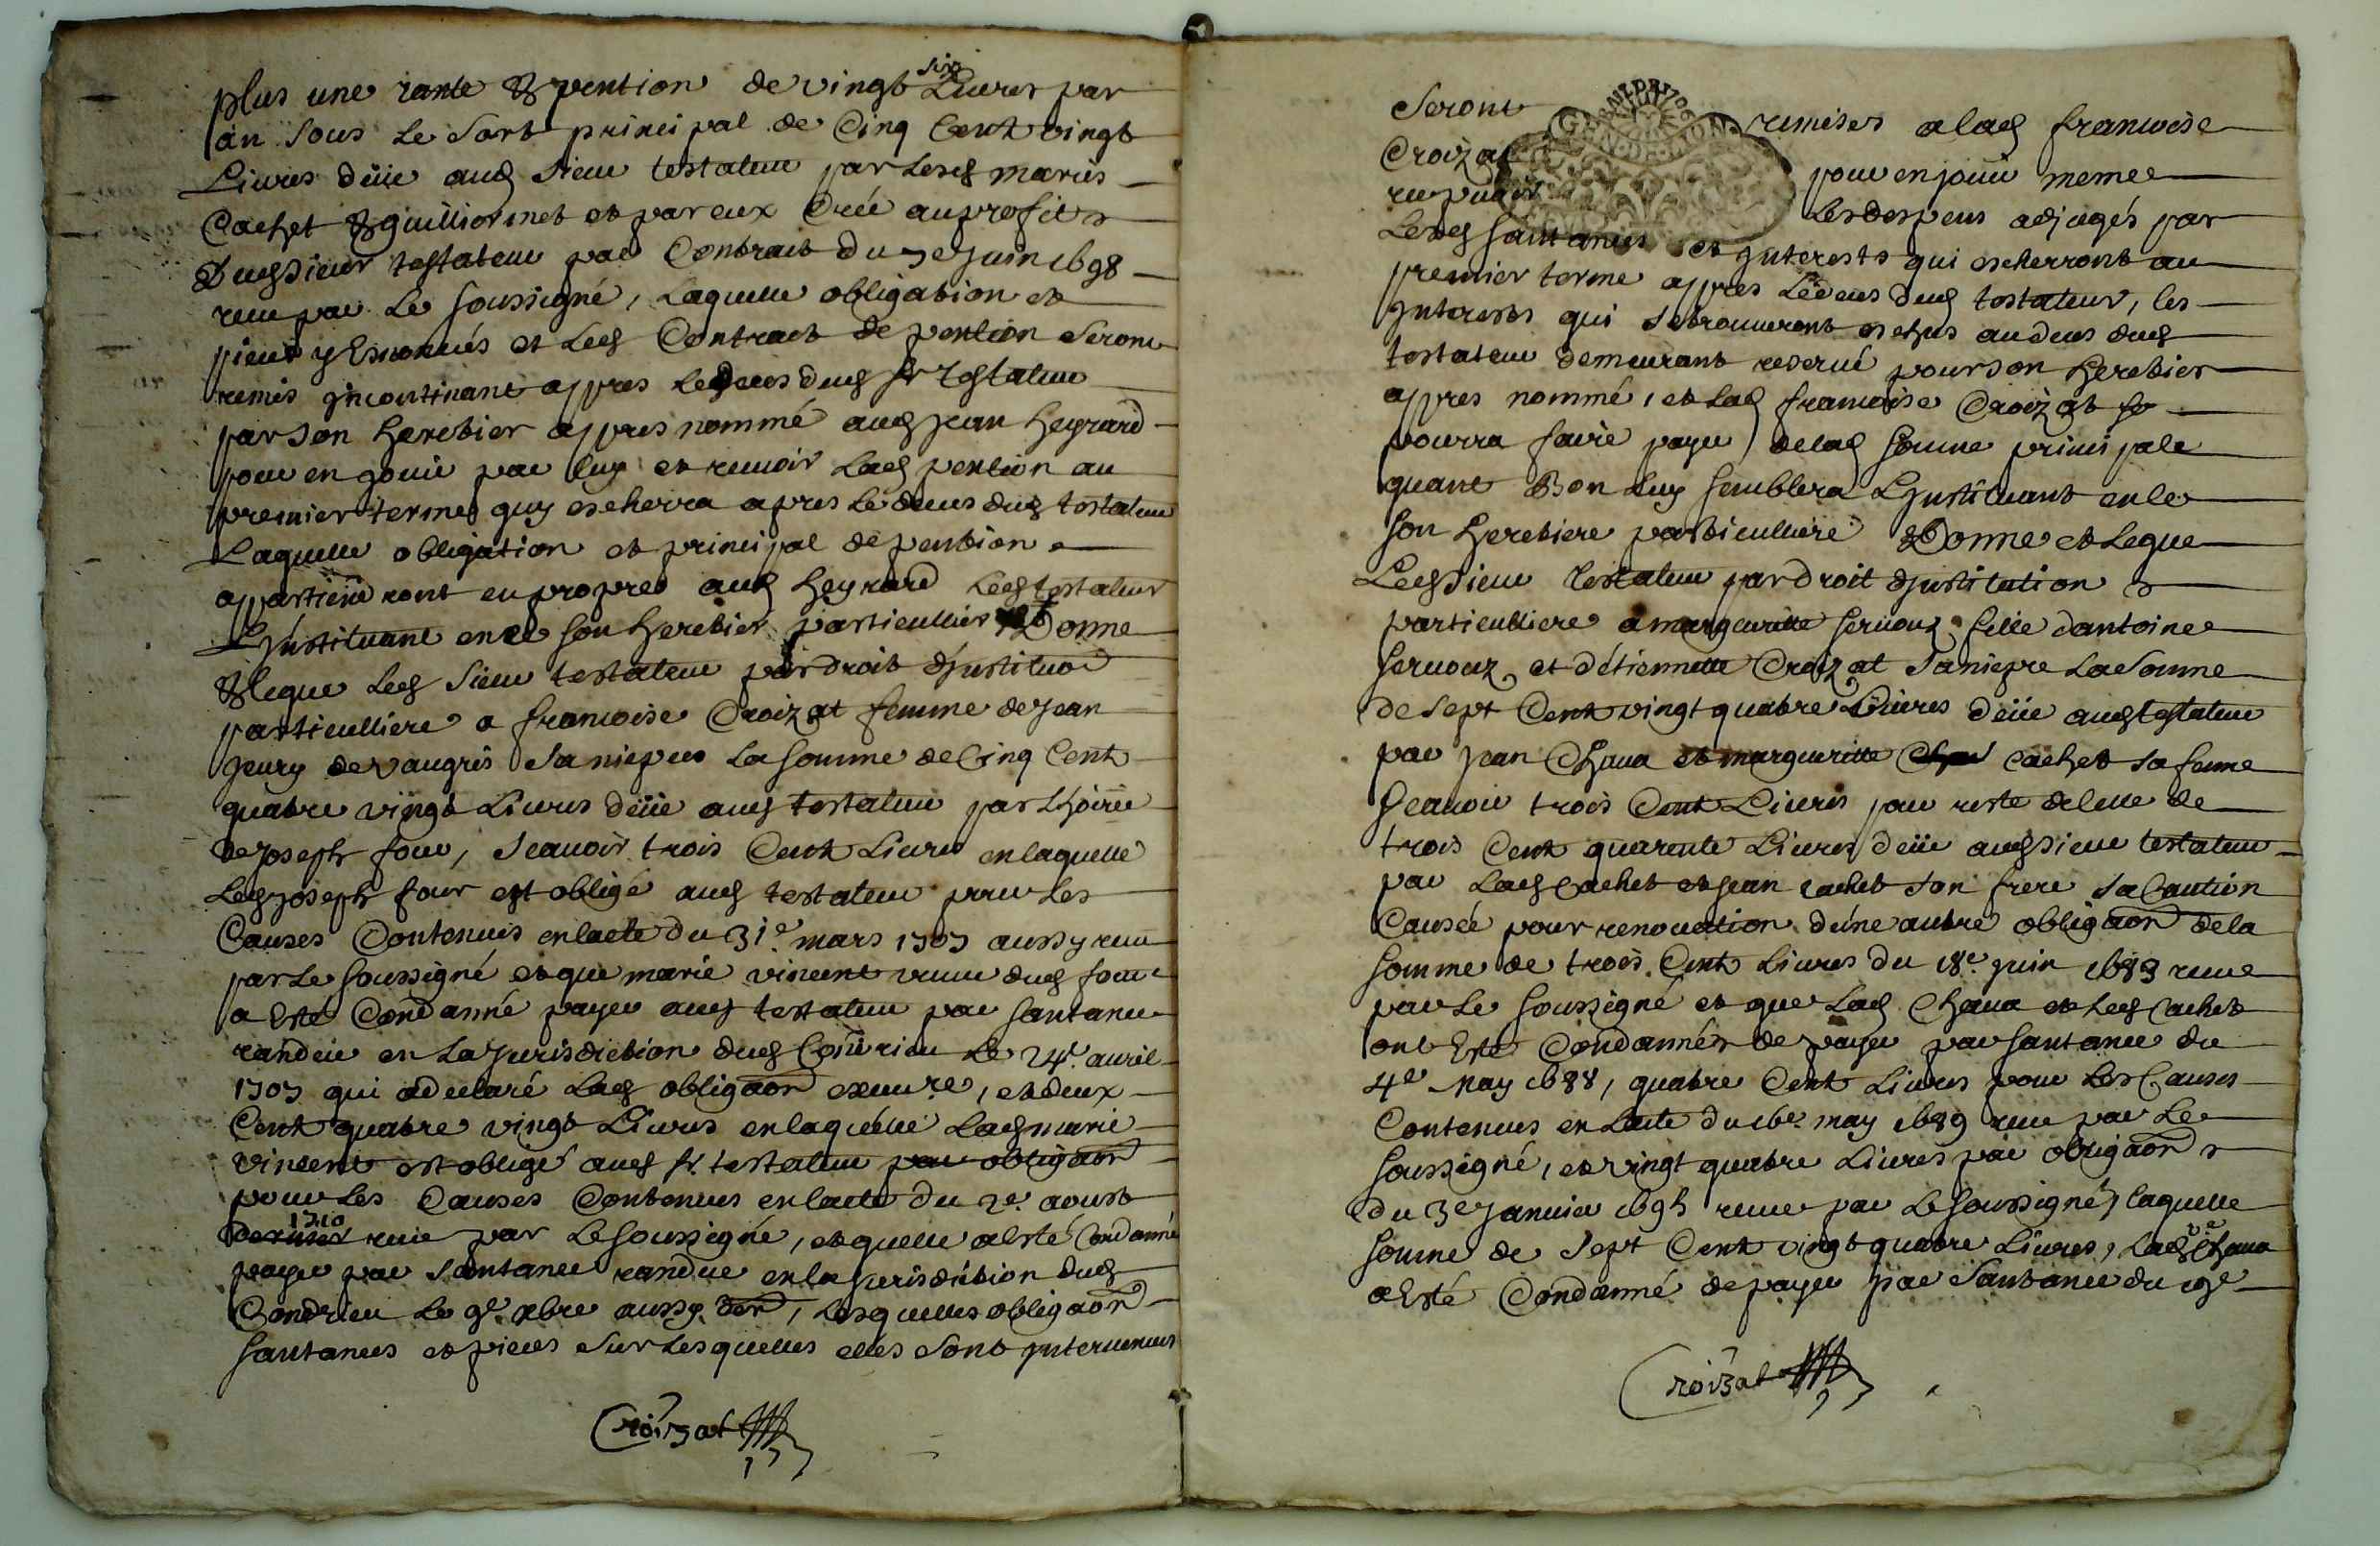 plus une rante & pention de vingt six Livres par
an sous Le Sort principal de Cinq Cent vingt
Livres deüe aud Sieur testateur par Lesd mariés
Cachet & guilliormet et par eux Créé au profit
Dudsieur testateur par Contract du 7e Juin 1698
receu par Le soussigné, Laquelle obligation et
pieces y Enoncés et Led Contract de pention Seront
remis jncontinant appres Le deces dud Sr testateur
par son heretier appres nommé aud Jean heyrard
pour en gouir par luy et recevoir Lad pention au
premier terme quy escherra apres Le deces dud testateur
Laquelle obligation et principal de pention
appartiendront en propres aud heyrard Led testateur
L'jnstituant en ce son heretier particullier Donne
& legue Led Sieur testateur par droit d'jnstituôn
particulliere a francoise Croizat femme de Jean
Jeury de vaugris Sa niepce La somme de Cinq Cent
quatre vingt Livres deüe aud testateur par L'hoirie
de Joseph four, Scavoir trois Cent Livres en laquelle
Led Joseph four est obligé aud testateur pour Les
Causes Contenües en l'acte du 31e mars 1707 aussy receu
par Le soussigné et que marie vincent veuve dud four
a Esté Condanné payer aud testateur par santance
randeüe en La Jurisdiction dud Condrieu Le 24e avril
1707 qui a declaré Lad obligaôn exeure, et deux
Cent quatre vingt Livres en laquelle Lad marie
vincent est obligé aud sr testateur par obligaôn
pour Les Causes Contenues en l'acte du 2e aoust
1710
dernier receüe par Le soussigné, et quelle a Esté Condanné
payer par Santance randue en la Jurisdiction dud
Condrieu Le 9e xbre aussy der, Lesquelles obligaôn
santances et pieces Sur Lesquelles elles sont jntervenues
Croizat
Seront remises a lad francoise
Croizat pour en jouir meme
Les despens adjugés par
Lesd santances et jnterests qui escherront au
premier terme appres Le deces dud testateur, les
jnterests qui se trouveront escheus au deces dud
testateur demeurant reservé pour son heretier
appres nommé, et Lad francoise Croizat se
pourra faire payer de lad somme principale
quant Bon Luy semblera L'jnstituant en ce
son heretiere particulliere Donne et Legue
Led Sieur testateur par droit d'jnstitution
particulliere a margueritte servouz fille d'antoine
servouz et d'etiennette Croizat Sa niepce La somme
de Sept Cent vingt quatre Livres deüe aud testateur
par Jean Chava et margueritte Cachet sa femme
Scavoir trois Cent Livres pour reste de celle de
trois Cent quarente Livres deüe audsieur testateur
par Lad Cachet et Jean Cachet son frere sa Caution
Causée pour renovation d'une autre obligaôn de la
somme de trois Cent Livres du 18e juin 1683 receue
par Le soussigné et que Led Chava et Lad Cachet
ont Esté Condannés de payer par santance du
4e May 1688, quatre Cent Livres pour Les Causes
Contenues en L'acte du 16e may 1689 receu par Le
soussigné, et vingt quatre Livres par obligaôn
du 3e Janvier 1695 receue par Le soussigné, laquelle
somme de Sept Cent vingt quatre Livres, Lad ve Chava
a Esté Condanné de payer par Santance du 19e
Croizat